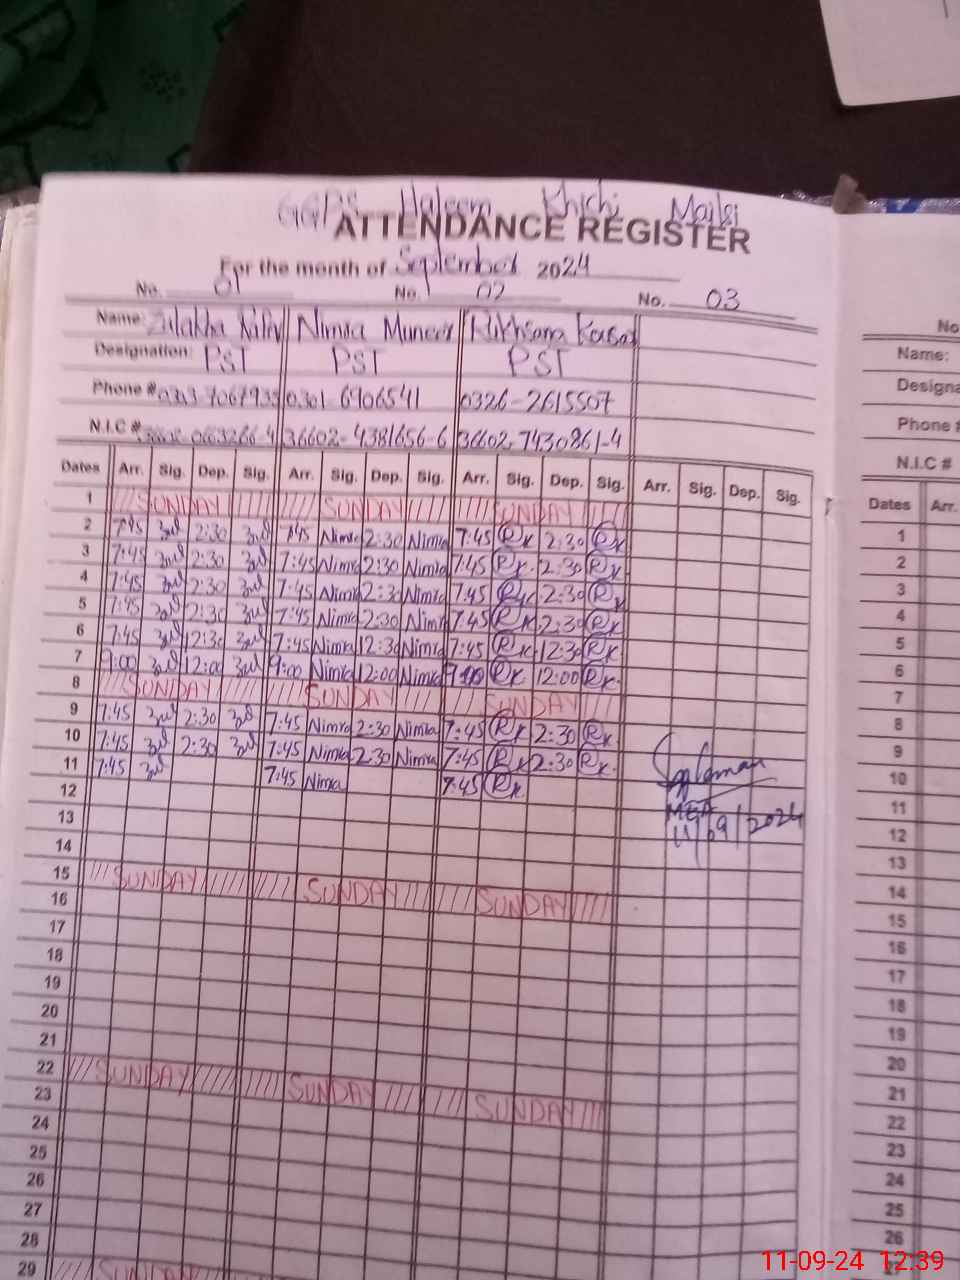 GGPS Haleem Khichi Mailsi
ATTENDANCE REGISTER
For the month of September 2024
No. 01 No. 02 No. 03
Name: Zulakha Nimra Muneer Rukhsana No
Designation: PST PST PST Name:
Phone # 0301 6906541 0326-2615507 Designa
N.I.C # 36602-4381656-6 36602-7430861-4 Phone #
N.I.C #
Dates Arr. Sig. Dep. Sig. Arr. Sig. Dep. Sig. Arr. Sig. Dep. Sig. Arr. Sig. Dep. Sig. Dates Arr.
1 SUNDAY SUNDAY SUNDAY 1
2 7:45 Zul 2:30 Zul 7:45 Nimra 2:30 Nimra 7:45 Rk 2:30 Rk 2
3 7:45 Zul 2:30 Zul 7:45 Nimra 2:30 Nimra 7:45 Rk 2:30 Rk 3
4 7:45 Zul 2:30 Zul 7:45 Nimra 2:30 Nimra 7:45 Rk 2:30 Rk 4
5 7:45 Zul 2:30 Zul 7:45 Nimra 2:30 Nimra 7:45 Rk 2:30 Rk 5
6 7:45 Zul 12:30 Zul 7:45 Nimra 12:30 Nimra 7:45 Rk 12:30 Rk 6
7 9:00 Zul 12:00 Zul 9:00 Nimra 12:00 Nimra 9:00 Rk 12:00 Rk 7
8 SUNDAY SUNDAY SUNDAY 8
9 7:45 Zul 2:30 Zul 7:45 Nimra 2:30 Nimra 7:45 Rk 2:30 Rk 9
10 7:45 Zul 2:30 Zul 7:45 Nimra 2:30 Nimra 7:45 Rk 2:30 Rk 10
11 7:45 Zul 7:45 Nimra 7:45 Rk MEA 11
12 11/09/2024 12
13 13
14 14
15 SUNDAY SUNDAY SUNDAY 15
16 16
17 17
18 18
19 19
20 20
21 21
22 SUNDAY SUNDAY SUNDAY 22
23 23
24 24
25 25
26 26
27
28
29 SUNDAY
11-09-24 12:39